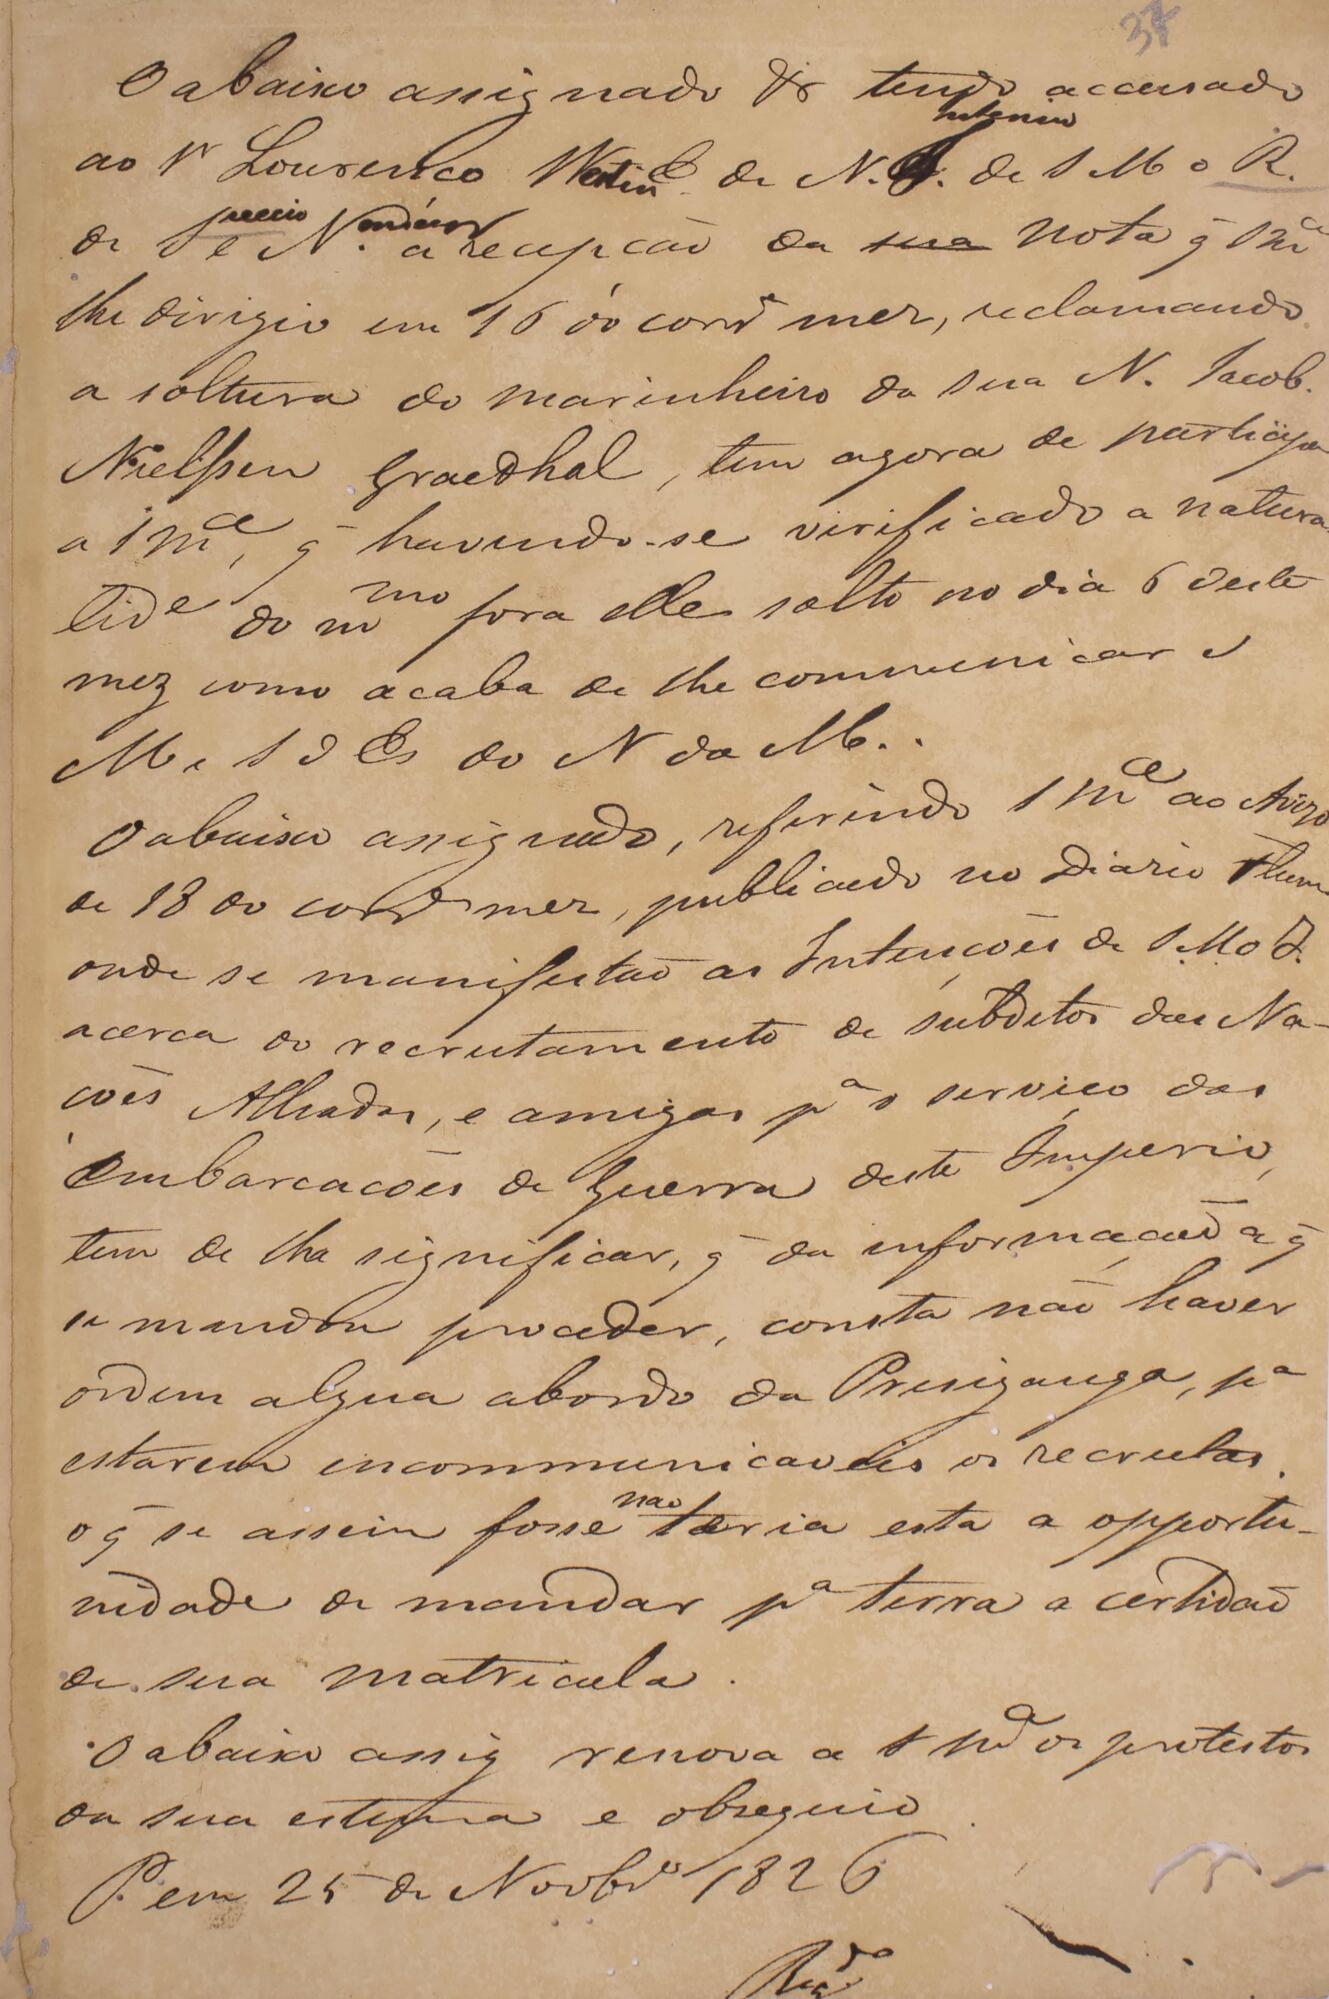 37
O abaixo assignado &r tendo accusado
ao Sr Lourenço Westin E. de N. interino de S M o R.
de Suecia e N. a recepção da sua nota q̃ Sm.ce
lhe dirigio em 16 do corr.e mez, reclamando
a soltura do marinheiro da sua N. Jacob.
Nielssen Graedhal, tem agora de participar
a S M.ce, q̃ havendo-se virificado a natura
lid.e do m.mo fora elle solto no dia 6 deste
mez como acaba de lhe communicar o
M. e S d Es do N da M..
O abaixo assignado, referindo S M.ce ao Avizo
de 18 do corr.e mez, publicado no Diario Flum.
onde se manifestão as Intenções de S.M.o I.
acerca do recrutamento de subditos das Na-
ções Alliadas, e amigas p.a o serviço das
Embarcacões de Guerra deste Imperio,
tem de lhe significar, q̃ da informação a q̃
se mandou proceder, consta não haver
ordem algũa abordo da Presiganga, p.a
estarem incommunicaveis os recrutas.
o q̃ se assim fosse não teria esta a opportu-
nidade de mandar p.a terra a certidão
de sua matricula.
O abaixo assig renova a S M.ce os protestos
da sua estima e obsequio.
P. em 25 de Novbr.o 1826